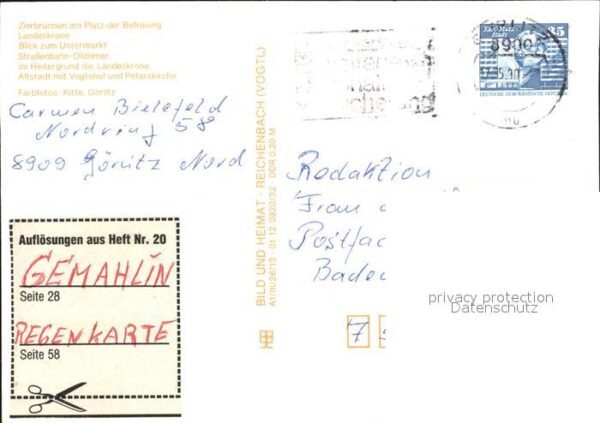 Zierbrunnen am Platz der Befreiung
Landeskrone
Blick zum Untermarkt
Straßenbahn-Oldtimer,
im Hintergrund die Landeskrone
Altstadt mit Vogtshof und Peterskirche
Farbfotos: Kitte, Görlitz
Carmen Bielefeld
Nordring 58
8909 Görlitz Nord
Auflösungen aus Heft Nr. 20
GEMAHLIN
Seite 28
REGENKARTE
Seite 58
BILD UND HEIMAT · REICHENBACH (VOGTL)
A1/III/26/13 01 12 0820/32 DDR 0,20 M
8900
35
Redaktion
Frau
Postfac
Bade
7
privacy protection
Datenschutz